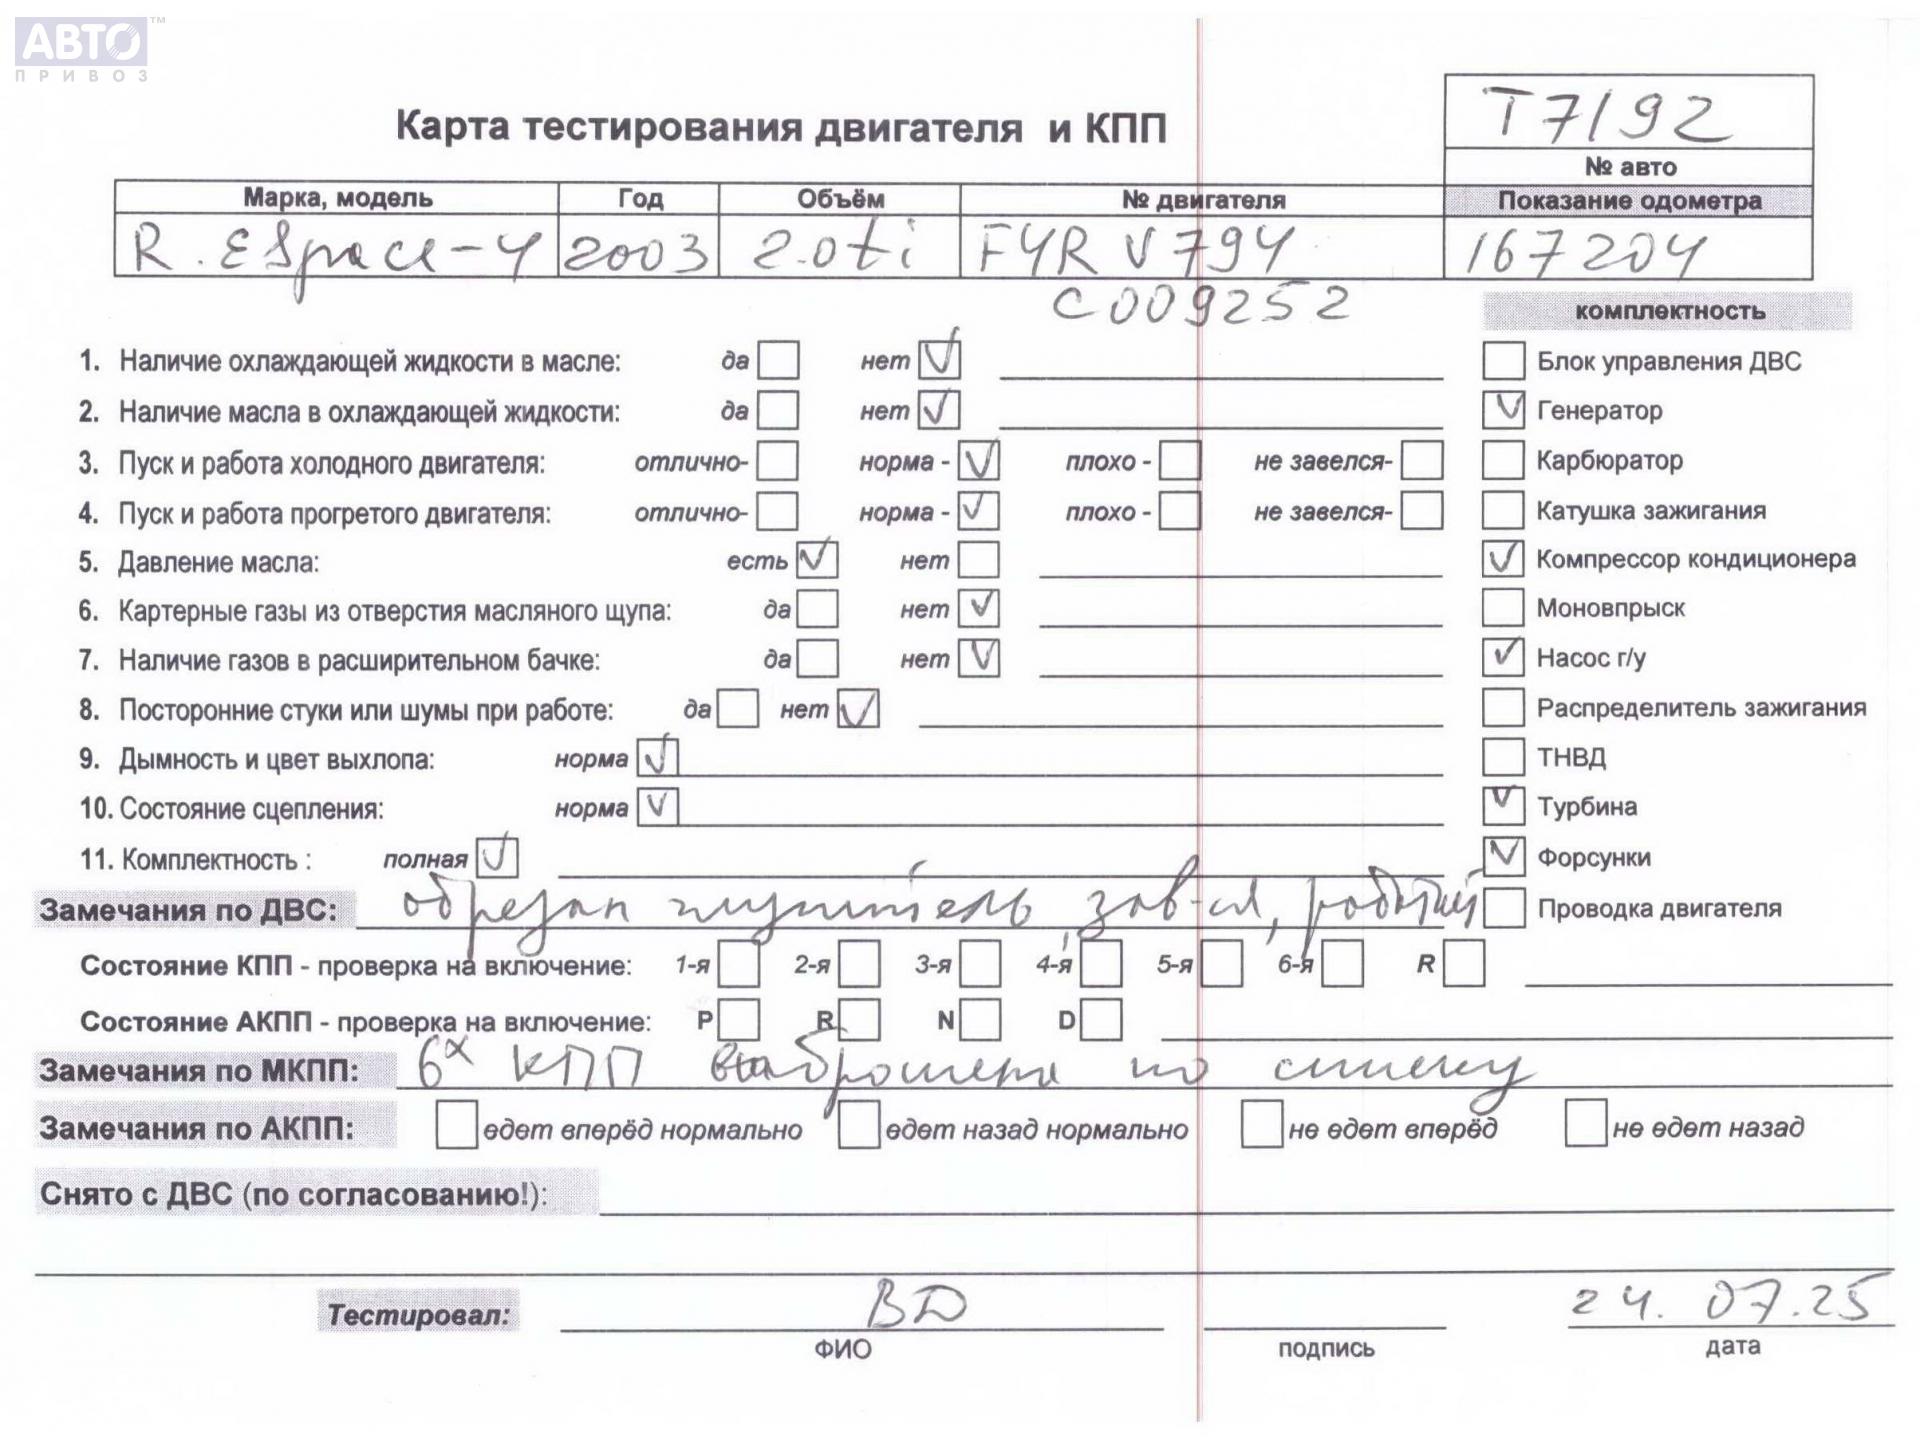 АВТО™
ПРИВОЗ
Т7192
Карта тестирования двигателя и КПП
№ авто
Марка, модель Год Объём № двигателя Показание одометра
R. ESpace-4 2003 2.0ti F4R V794 167204
C009252
комплектность
1. Наличие охлаждающей жидкости в масле: да нет ✓ Блок управления ДВС
2. Наличие масла в охлаждающей жидкости: да нет ✓ ✓ Генератор
3. Пуск и работа холодного двигателя: отлично- норма - ✓ плохо - не завелся- Карбюратор
4. Пуск и работа прогретого двигателя: отлично- норма - ✓ плохо - не завелся- Катушка зажигания
5. Давление масла: есть ✓ нет ✓ Компрессор кондиционера
6. Картерные газы из отверстия масляного щупа: да нет ✓ Моновпрыск
7. Наличие газов в расширительном бачке: да нет ✓ ✓ Насос г/у
8. Посторонние стуки или шумы при работе: да нет ✓ Распределитель зажигания
9. Дымность и цвет выхлопа: норма ✓ ТНВД
10. Состояние сцепления: норма ✓ ✓ Турбина
11. Комплектность : полная ✓ ✓ Форсунки
Замечания по ДВС: обрезан глушитель, зав-ся, работает Проводка двигателя
Состояние КПП - проверка на включение: 1-я 2-я 3-я 4-я 5-я 6-я R
Состояние АКПП - проверка на включение: P R N D
Замечания по МКПП: 6х КПП выброшена по
Замечания по АКПП: едет вперёд нормально едет назад нормально не едет вперёд не едет назад
Снято с ДВС (по согласованию!):
Тестировал: ВД 24.07.25
ФИО подпись дата